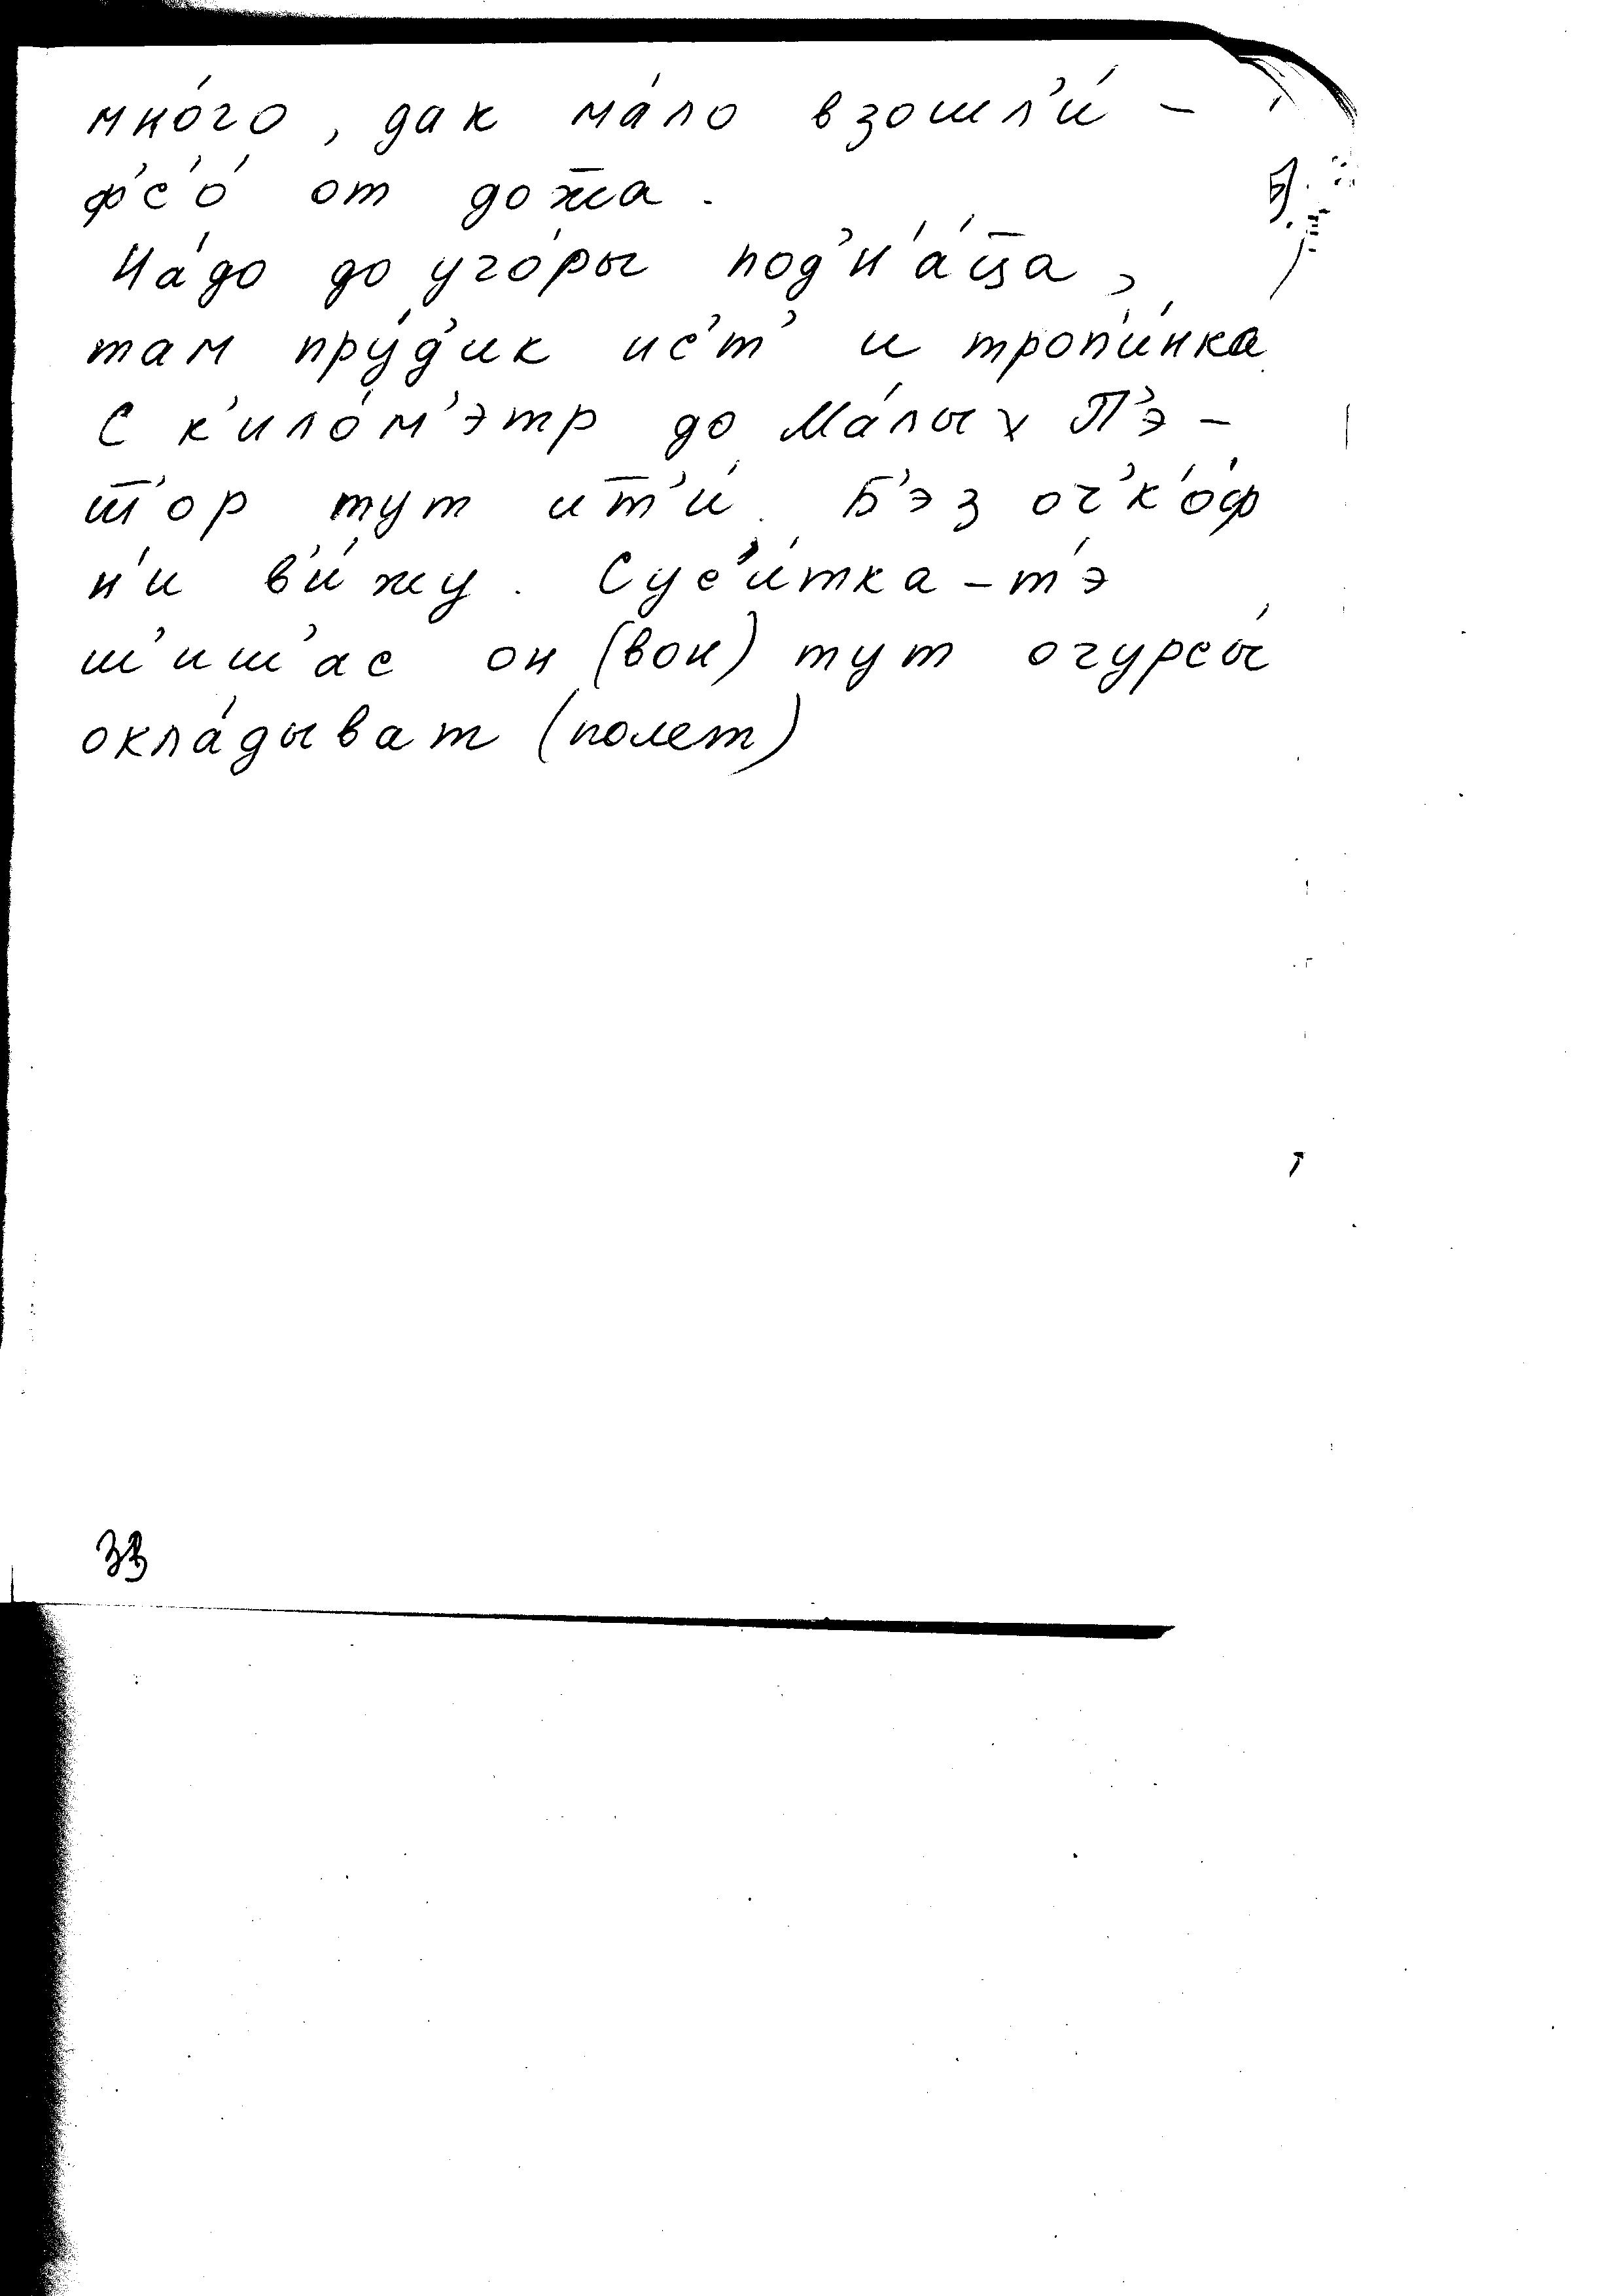 мно́го, дак ма́ло взошл’и́ –
ф’с’о́ от дож̅а.
На́до до уго́ры под’н’а́ц̅а,
там пру́д’ик ис’т’ и троп’и́нка
С к’ило́м’этр до Ма́лых П’э –
ш̅’ор тут ит̅’и́. Б’эз оч’к’о́ф
н’и в’и́жу. Сус’и́тка – т’э
ш’иш’ас он (вон) тут огурсы́
окла́дыват (полет)
33